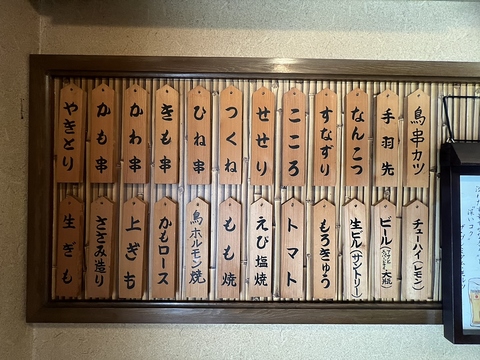 鳥串カツ
手羽先
なんこつ
すなずり
こころ
せせり
つくね
ひね串
きも串
かわ串
かも串
やきとり
チューハイ(レモン)
ビール 大瓶
生ビル(サントリー)
もろきゅう
トマト
えび塩焼
もも焼
鳥ホルモン焼
かもロース
上ぎも
ささみ造り
生ぎも